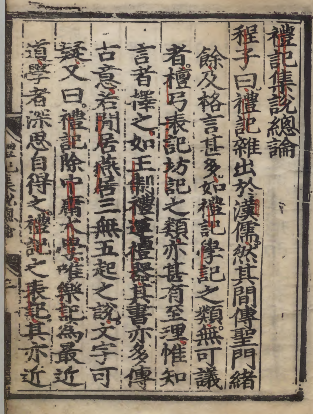 禮記集說總論
程子曰禮記雜出於漢儒然其間傳聖門緒
餘及格言甚多如禮記學記之類無可議
者檀弓表記坊記之類亦甚有至理惟知
言者擇之如王制禮運禮器其書亦多傳
古意若閒居燕居三無五起之說文字可
疑又曰禮記除中庸大學唯樂記為最近
道學者深思自得之禮記之表記其亦近